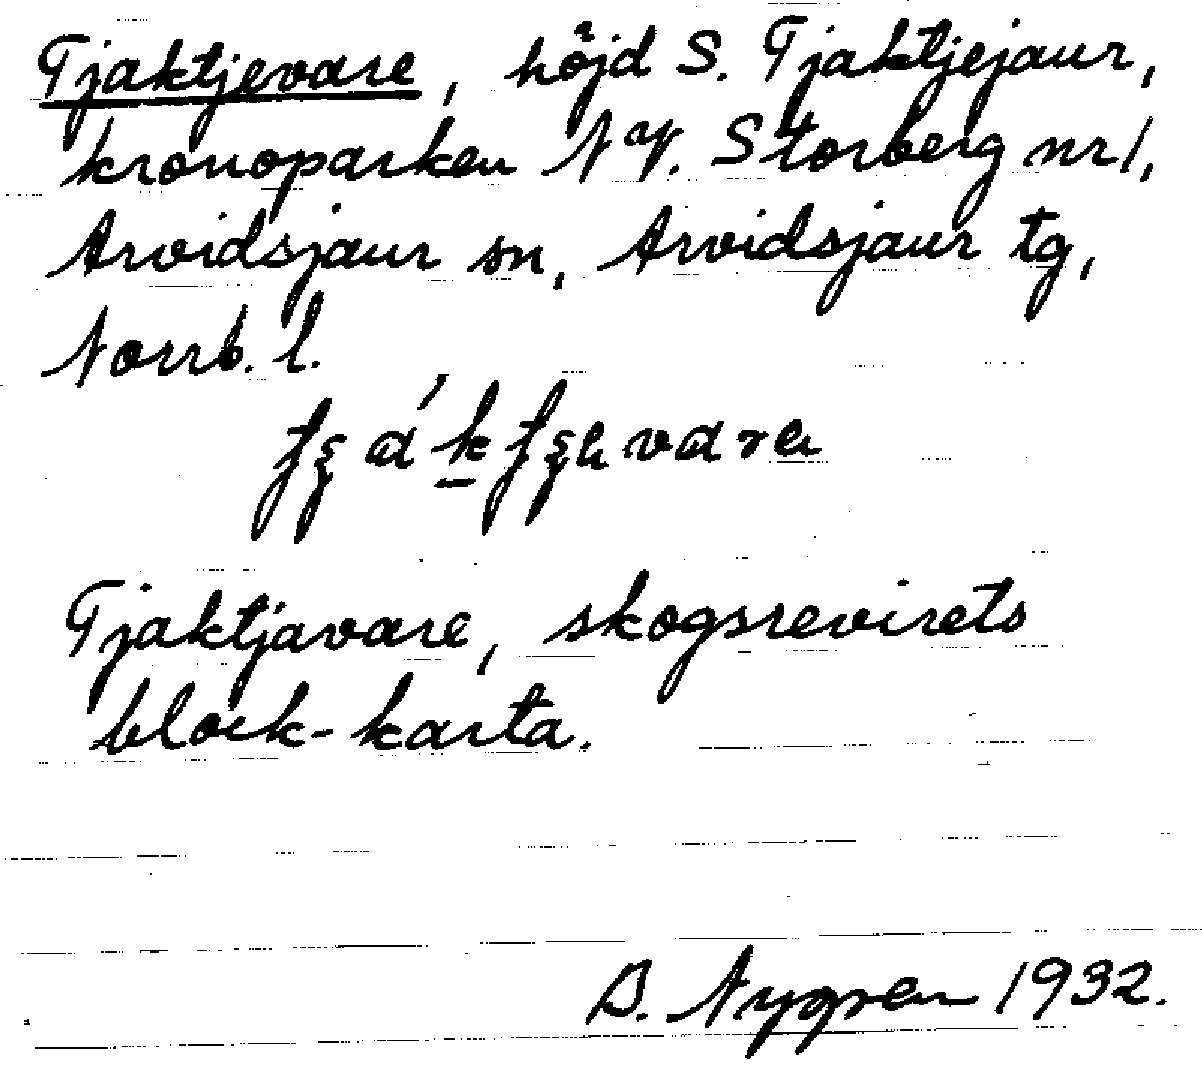 Tjaktjevare, höjd S. Tjaktjejaur,
kronoparken N av. Storberg nr 1,
Arvidsjaur sn, Arvidsjaur tg,
Norrb. l.
Tjaktjavare, skogsrevirets
block-karta.
B. Nygren 1932.